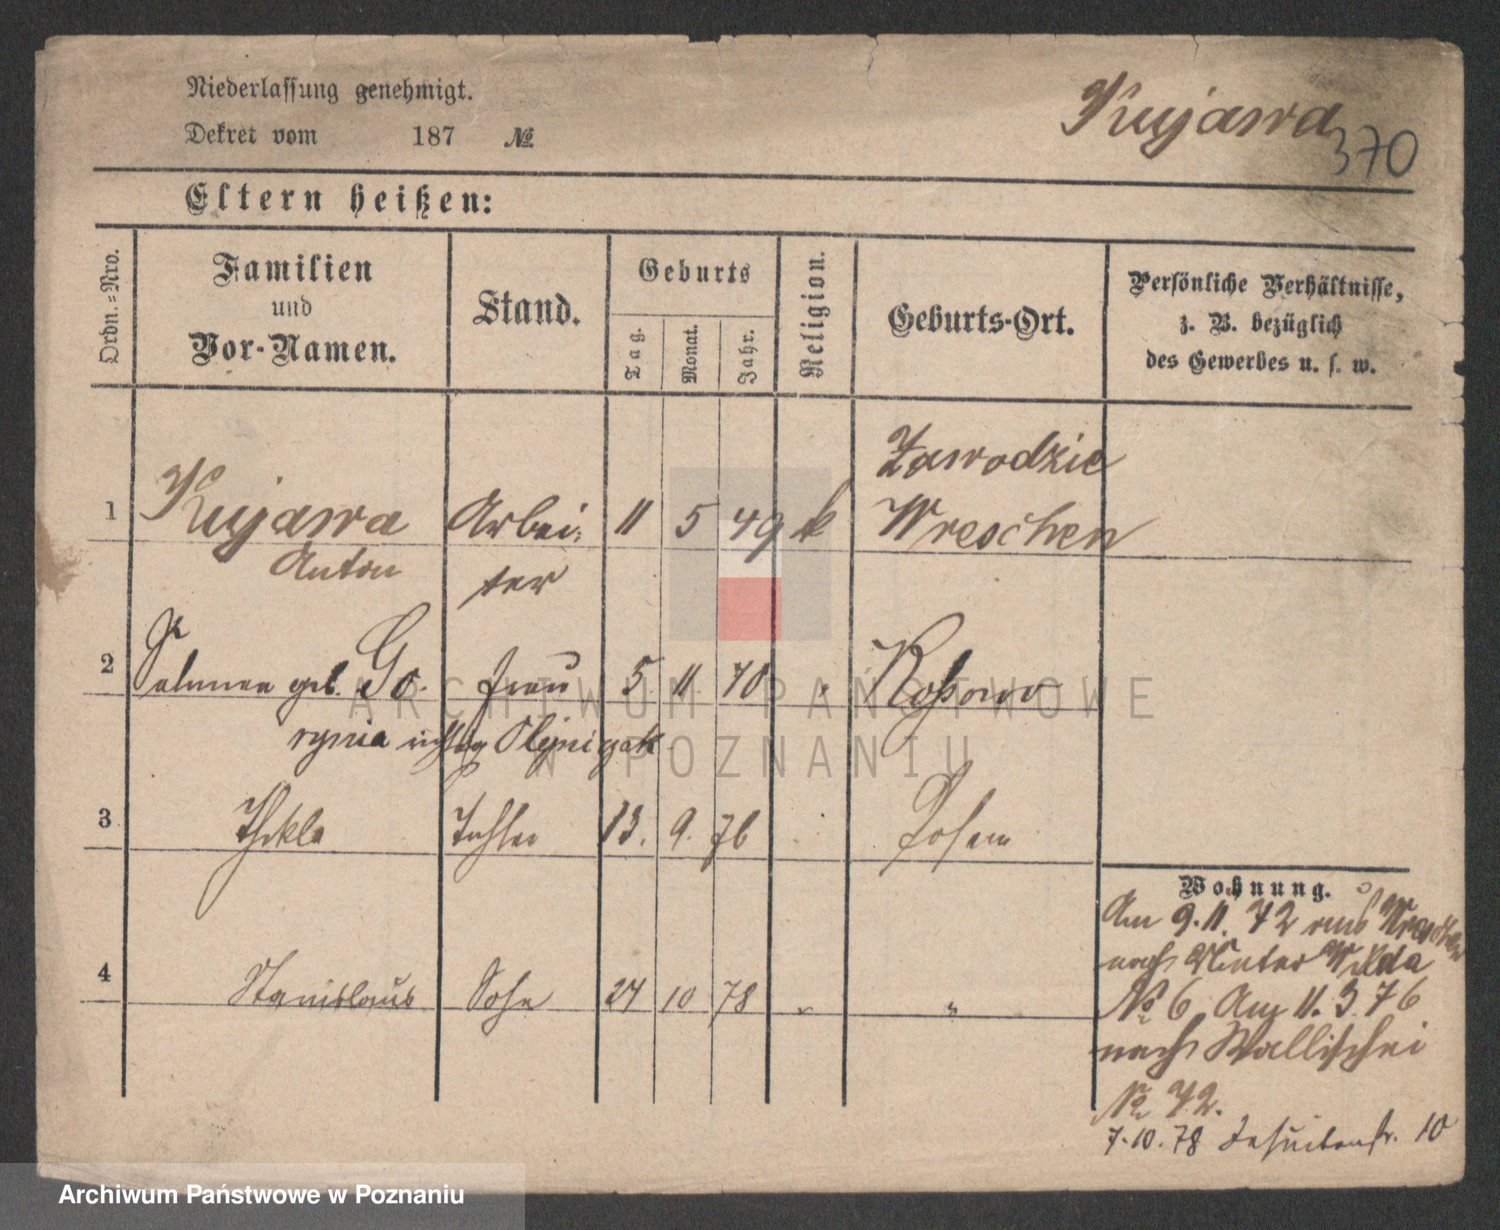 Niederlassung genehmigt.
Dekret vom 187 №
Kujawa
370
Eltern heißen:
Ordn.=Nro.
Familien
und
Vor-Namen.
Stand.
Geburts
Tag.
Monat.
Jahr.
Religion.
Geburts-Ort.
Persönliche Verhältnisse,
z. B. bezüglich
des Gewerbes u. s. w.
Zawodzie
1 Kujawa Arbei- 11 5 49 k Wreschen
Anton ter
2 geb. Go- Frau 5. 11. 
rynia richtig Olejniczak
3 Thekla Tochter 13. 9. 76 Posen
4 Stanislaus Sohn 24 10 78 "
Wohnung.
Am 9.11.72 aus Wreschen
nach Unter Wilda
№ 6. Am 11.3.76
nach Wallischei
№ 72.
7.10.78 Jesuitenstr. 10
ARCHIWUM PAŃSTWOWE
W POZNANIU
Archiwum Państwowe w Poznaniu